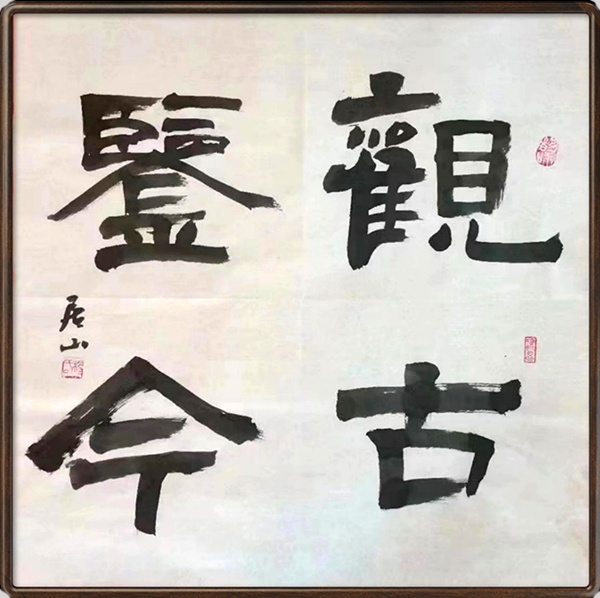 觀古
鑒今
居山